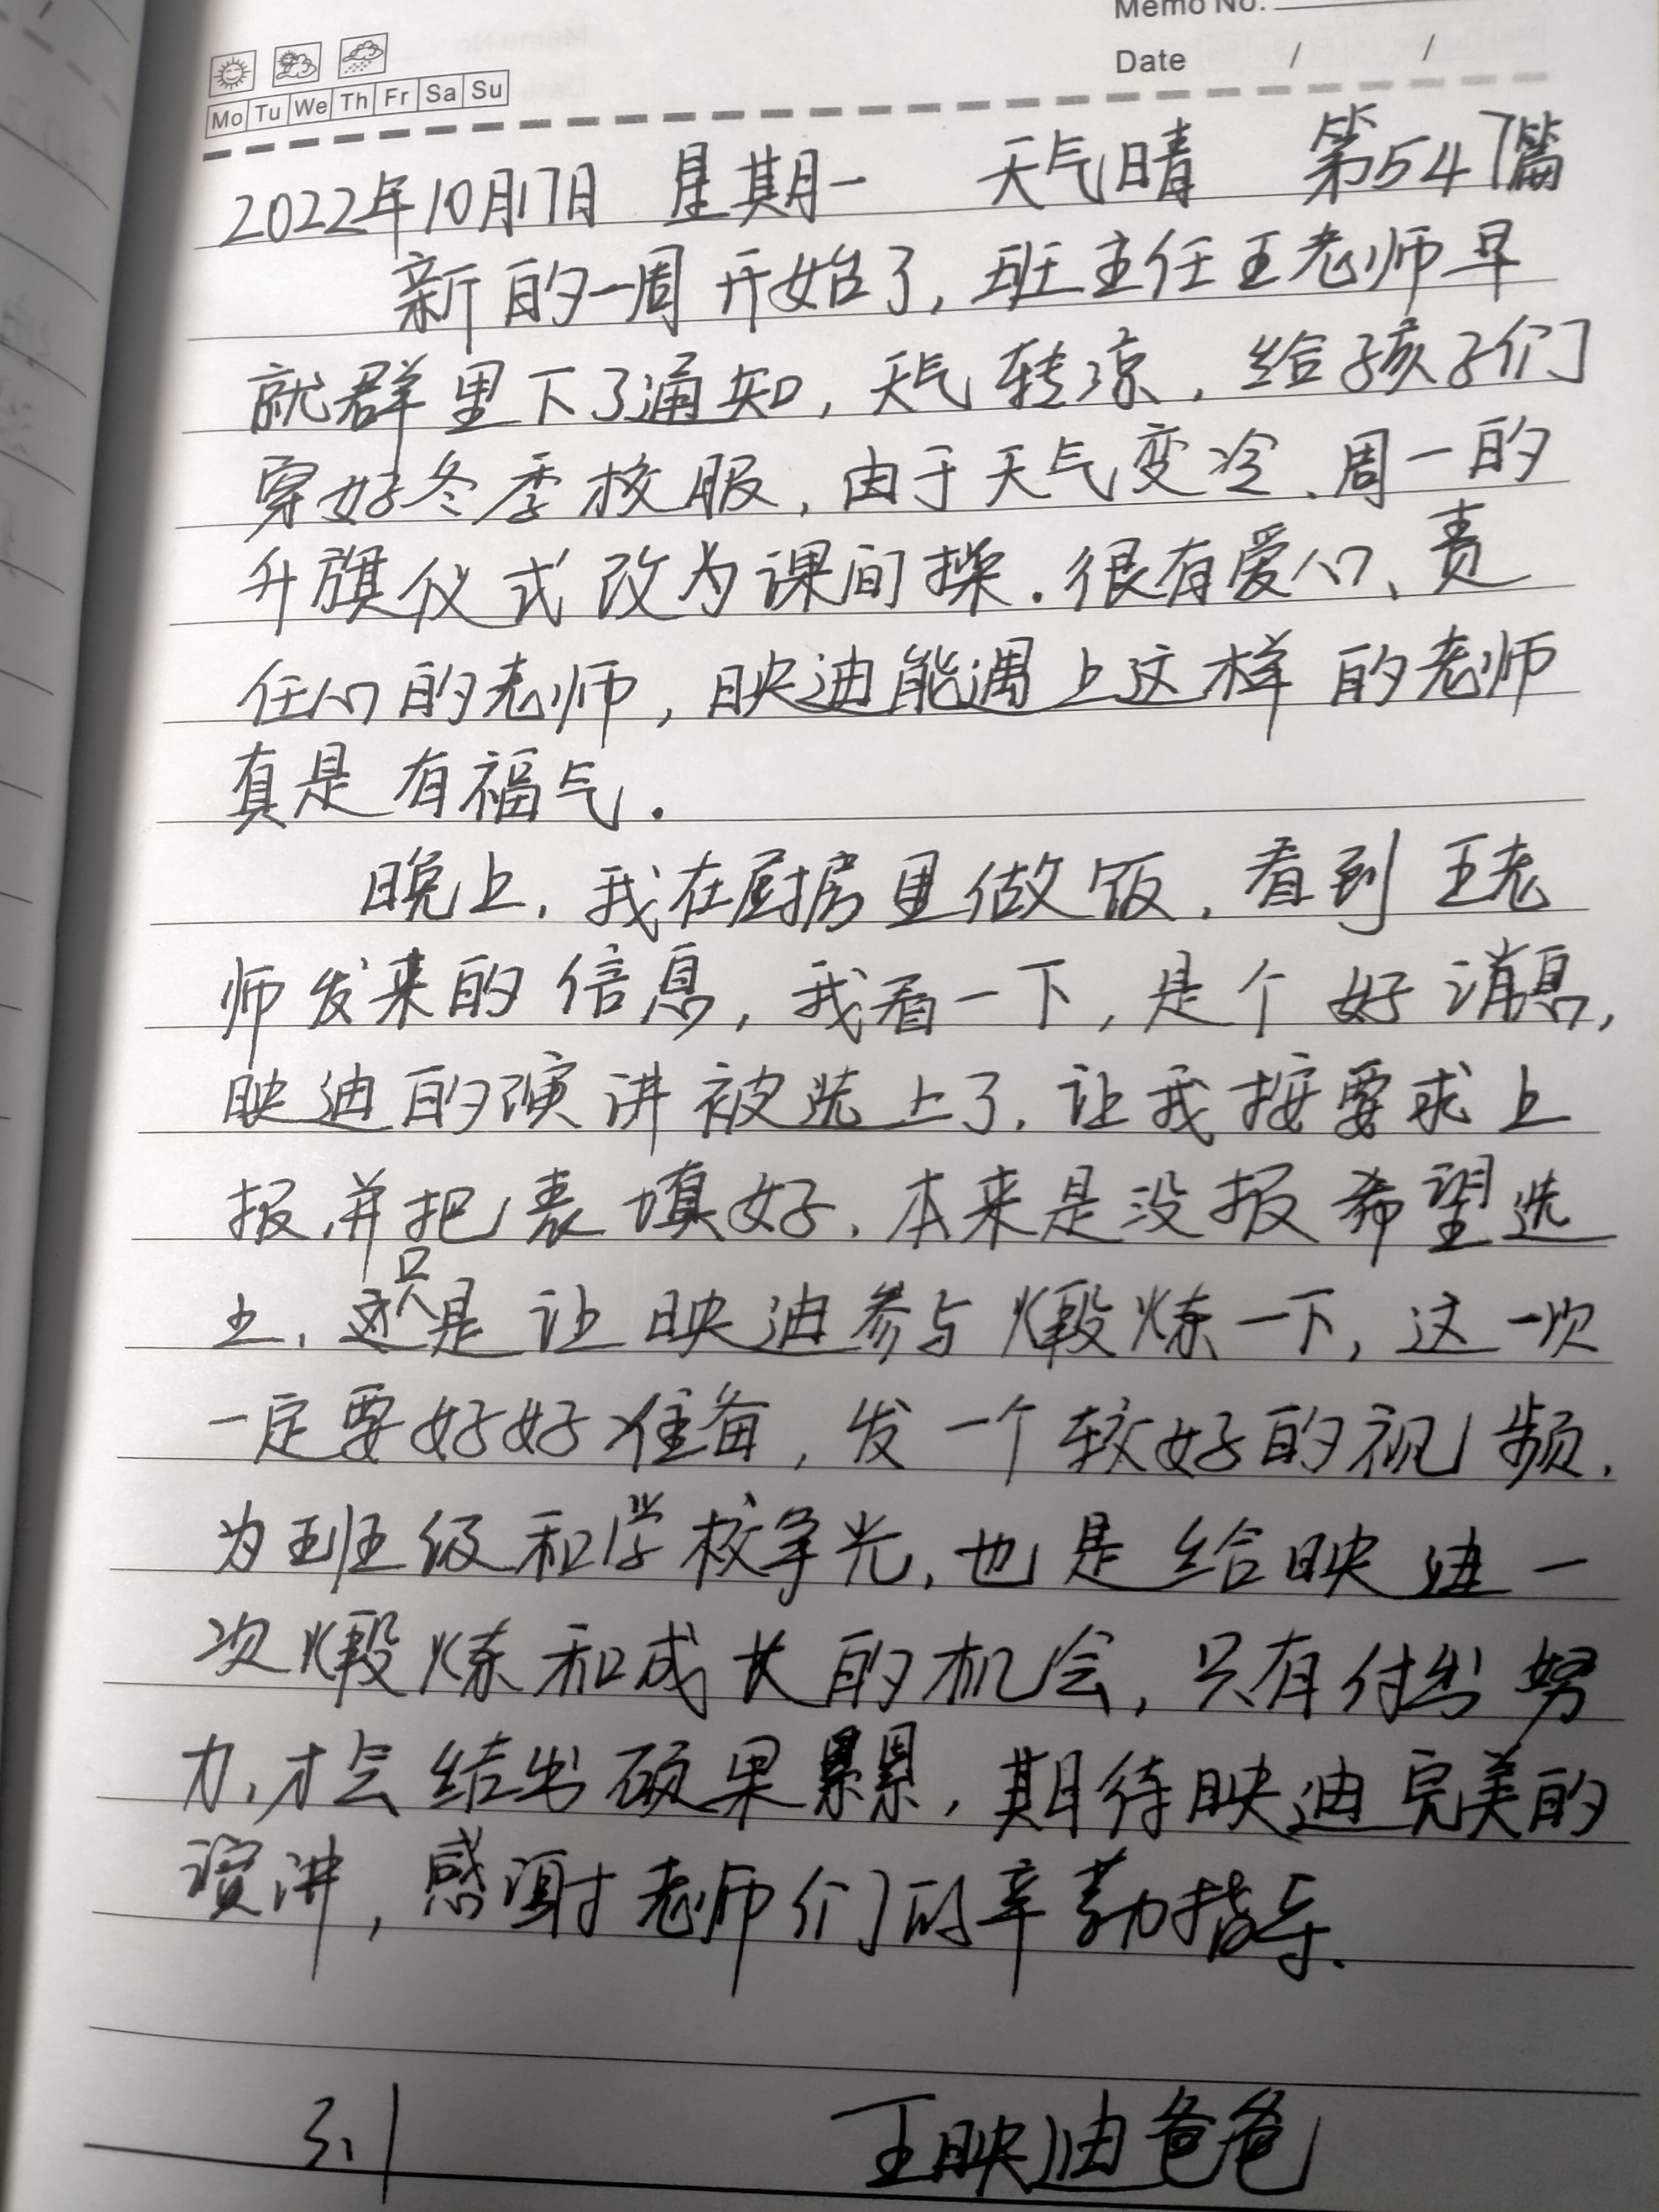 Memo No.
Date / /
Mo Tu We Th Fr Sa Su
2022年10月17日 星期一 天气晴 第547篇
新的一周开始了,班主任王老师早
就群里下了通知,天气转凉,给孩子们
穿好冬季校服,由于天气变冷、周一的
升旗仪式改为课间操.很有爱心、责
任心的老师,映迪能遇上这样的老师
真是有福气.
晚上,我在厨房里做饭,看到王老
师发来的信息,我看一下,是个好消息,
映迪的演讲被选上了.让我按要求上
报,并把表填好.本来是没报希望选
上,这只是让映迪参与煅炼一下,这一次
一定要好好准备,发一个较好的视频.
为班级和学校争光,也是给映迪一
次煅炼和成长的机会,只有付出努
力,才会结出硕果累累,期待映迪完美的
演讲,感谢老师们的辛勤指导.
王映迪爸爸